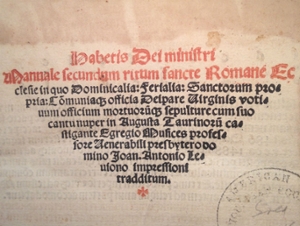 Habetis Dei ministri
Manuale secundum ritum sancte Romane Ec
clesie in quo Dominicalia: Ferialia: Sanctorum pro-
pria: Cōmuniaq; officia Deipare Virginis voti-
uum officium mortuorūq; sepulture cum suo
cantu nuper in Augusta Taurinorū ca-
stigante Egregio Musices profes-
sore Venerabili presbytero do
mino Joan. Antonio Le
uiono impressioni
tradditum.